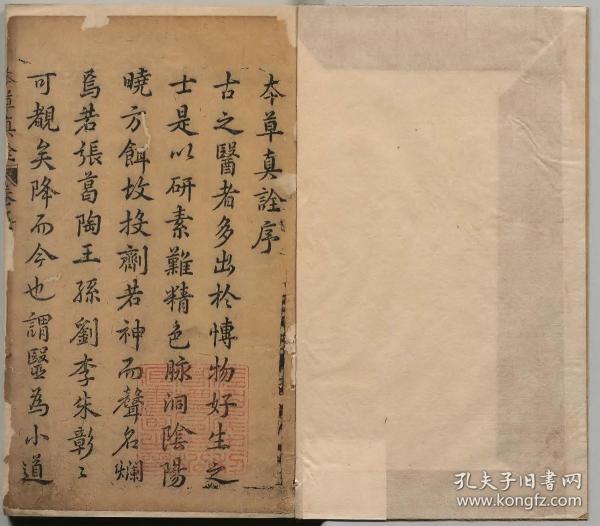 本草真詮序
古之醫者多出於博物好生之
士是以研素難精色脉洞陰陽
曉方餌故投劑若神而聲名爛
焉若張葛陶王孫劉李朱彰〻
可覩矣降而今也謂毉為小道
本草真詮
孔夫子旧书网
www.kongfz.com